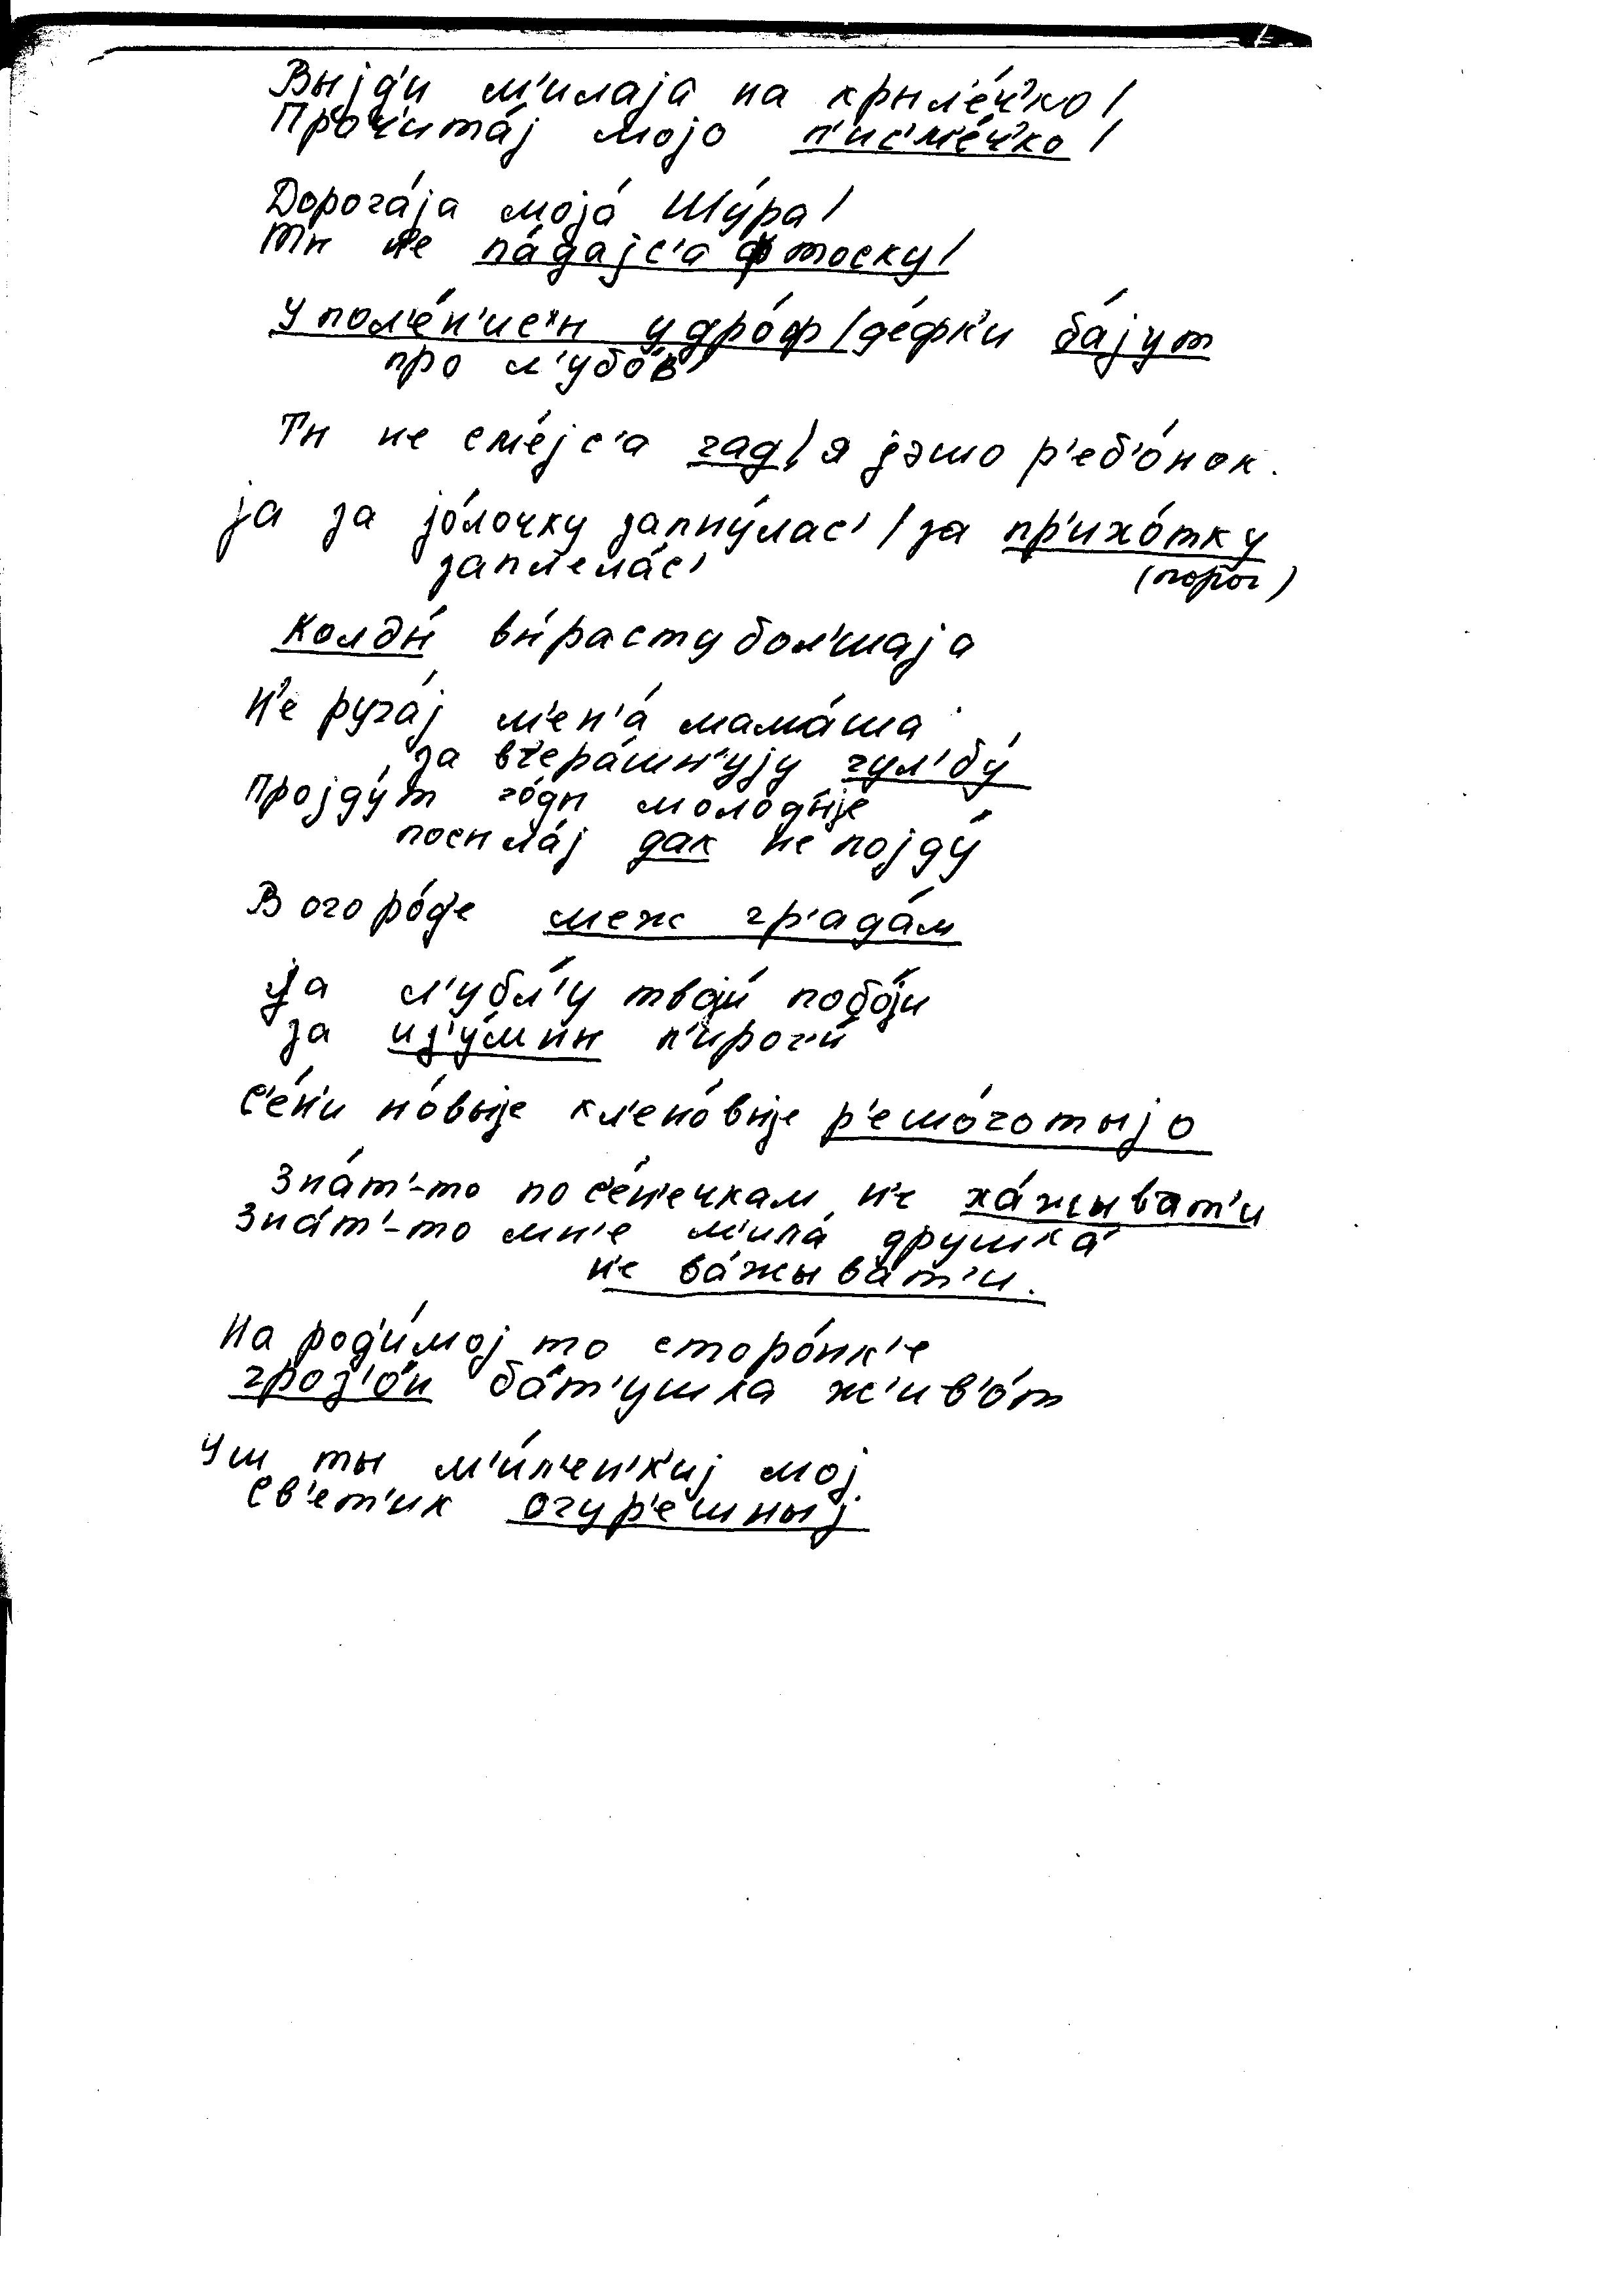 Выјд'и м'илаја на крыл'е́ч'ко/
Проч'ита́ј мојо п'ис'м'е́ч'ко/
Дорога́ја моја́ Шу́ра/
Ты не па́дајс'а ф тоску/
У пол'е́н'ис'н у дро́ф/де́фк'и ба́јут
про л'убо́в'
Ты не сме́јс'а гад/я јэшо р'еб'о́нок.
ја за јо́лочку запну́лас'/за пр'ихо́тку
запл'ела́с'
(порог)
Колды́ вы́расту бол'шаја
Н'е руга́ј м'ен'а́ мама́ша
за вчера́шн'ују гул'бу́
Пројду́т го́ды молоды́је
посыла́ј дак не појду́
В огоро́д'е меж гр'ада́м
Ја л'убл'у́ твоји́ побо́ји
за из'у́мны п'ирог'и́
С'е́н'и но́выје кл'ено́выје р'ешо́готыјо
Зна́т'-то по с'е́н'ечкам н'е ха́жыват'и
Зна́т'-то мн'е м'ила́ дружка́
н'е ва́жыват'и.
На род'и́мој то сторо́нк'е
гроз'о́н ба́т'ушка ж'ив'о́т
Уш ты м'и́л'ен'к'иј мој
Св'ет'ик огур'ешныј